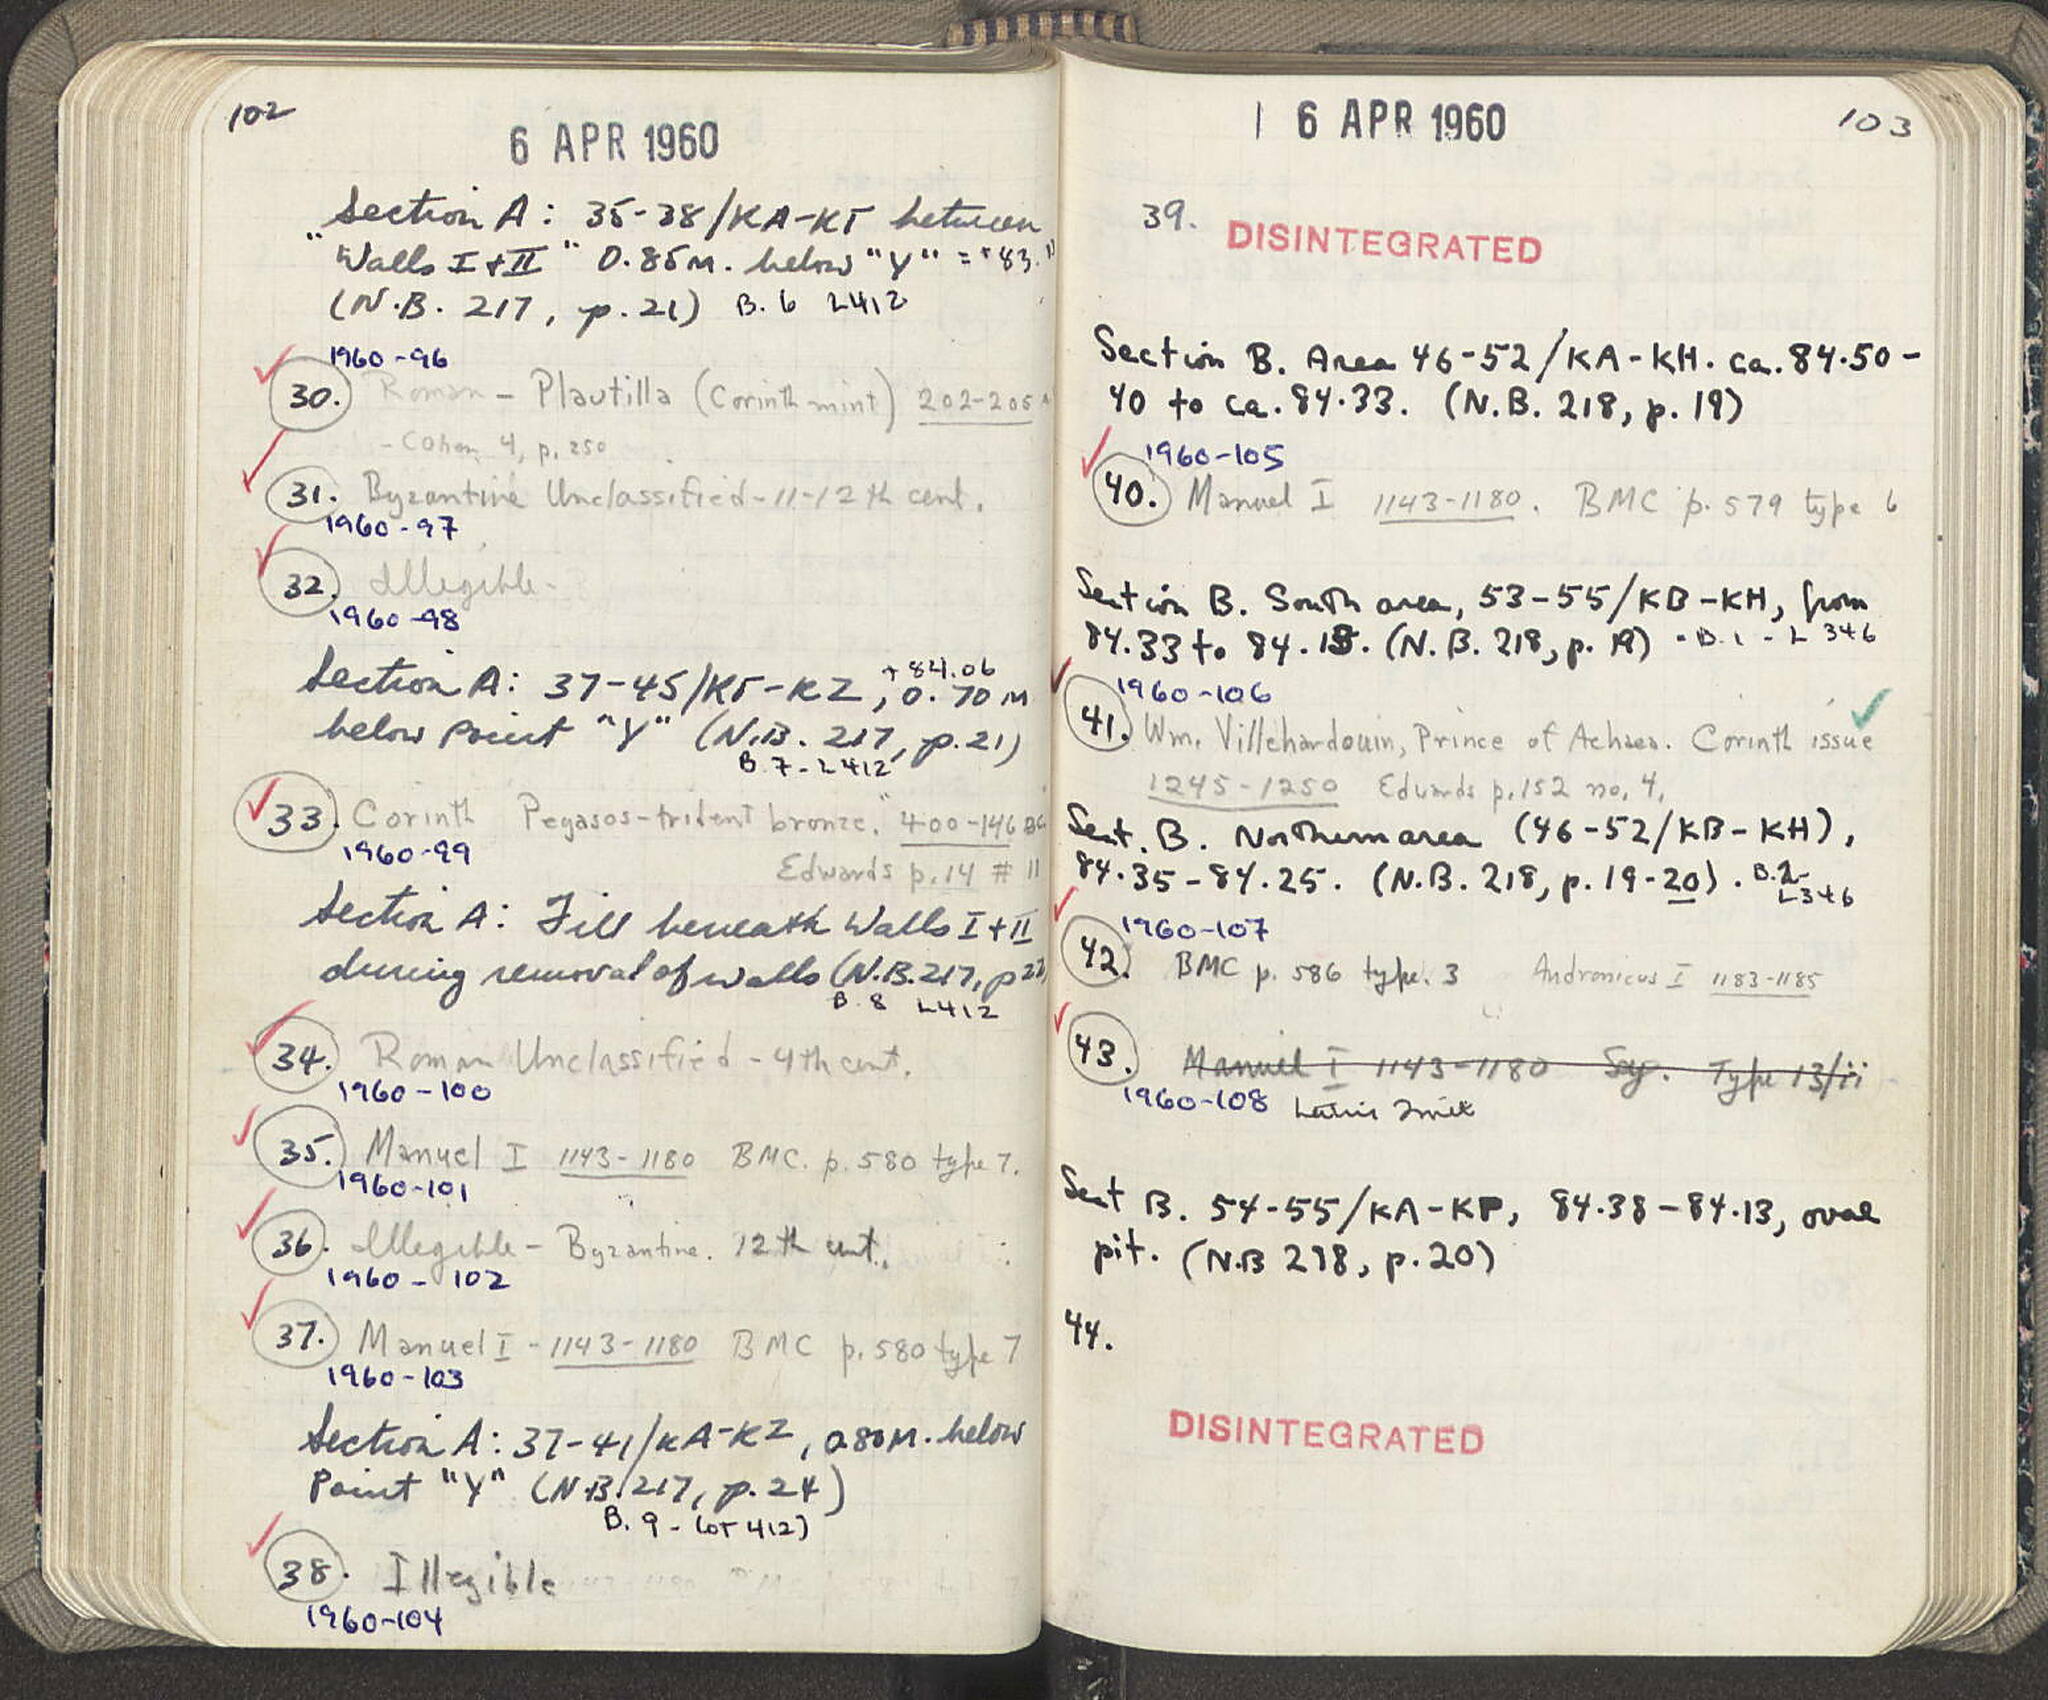 102
6 APR 1960
Section A: 35-38/KA-KΓ between
"Walls I+II" 0.85m. below "Y" = +83.
(N.B. 217, p.21) B. 6 L412
1960-96
30. Roman - Plautilla (Corinth mint) 202-205
- Cohen 4, p. 250
31. Byzantine Unclassified - 11-12th cent.
1960-97
32. Illegible -
1960-98
+84.06
Section A: 37-45/KΓ-KZ, 0.70 M
below Point "Y" (N.B. 217, p.21)
B. 7 - L412
33. Corinth Pegasos-trident bronze. 400-146 BC
1960-99
Edwards p.14 # 11
Section A: Fill beneath Walls I+II
during removal of walls (N.B. 217, p
B. 8 L412
34. Roman Unclassified - 4th cent.
1960-100
35. Manuel I 1143-1180 BMC. p. 580 type 7.
1960-101
36. Illegible - Byzantine. 12th cent.
1960-102
37. Manuel I - 1143-1180 BMC p. 580 type 7
1960-103
Section A: 37-41/KA-KZ, 0.80M. below
Point "Y" (N.B. 217, p.24)
B. 9 - Lot 412)
38. Illegible
1960-104
| 6 APR 1960
103
39. DISINTEGRATED
Section B. Area 46-52/KA-KH. ca. 84.50-
40 to ca. 84.33. (N.B. 218, p. 19)
1960-105
40. Manuel I 1143-1180. BMC p. 579 type 6
Section B. South area, 53-55/KB-KH, from
84.33 to 84.18. (N.B. 218, p. 19) - B.1 - L 346
1960-106
41. Wm. Villehardouin, Prince of Achaea. Corinth issue
1245-1250 Edwards p.152 no. 4.
Sect. B. Northern area (46-52/KB-KH),
84.35-84.25. (N.B. 218, p. 19-20). B.2-
L346
1960-107
42. BMC p. 586 type. 3 Andronicus I 1183-1185
43. Manuel I 1143-1180 Type 13/ii
1960-108 Latin Imit
Sect B. 54-55/KA-KP, 84.38-84.13, oval
pit. (N.B 218, p.20)
44.
DISINTEGRATED